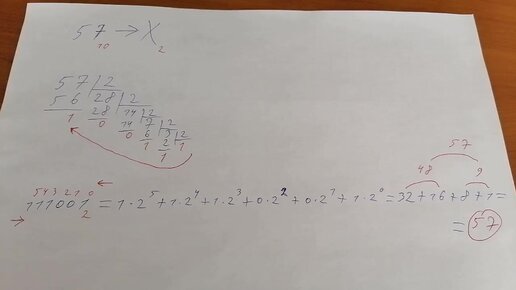 57₁₀ → X₂
57 | 2
56 28 | 2
1 28 14 | 2
0 14 7 | 2
0 6 3 | 2
1 2 1
1
57
48 9
5 4 3 2 1 0
111001₂ = 1·2⁵ + 1·2⁴ + 1·2³ + 0·2² + 0·2¹ + 1·2⁰ = 32 + 16 + 8 + 1 =
= 57